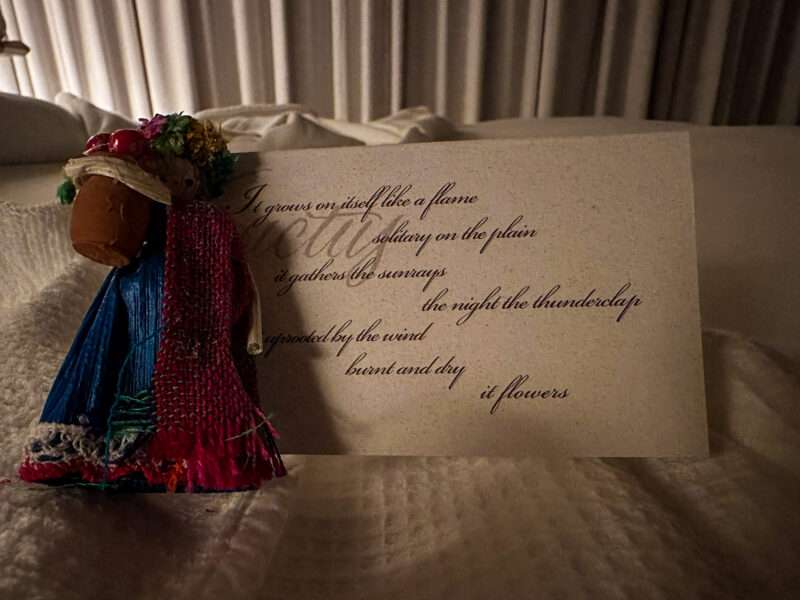 It grows on itself like a flame
solitary on the plain
it gathers the sunrays
the night the thunderclap
uprooted by the wind
burnt and dry
it flowers